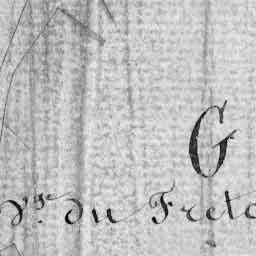 G
du Fret